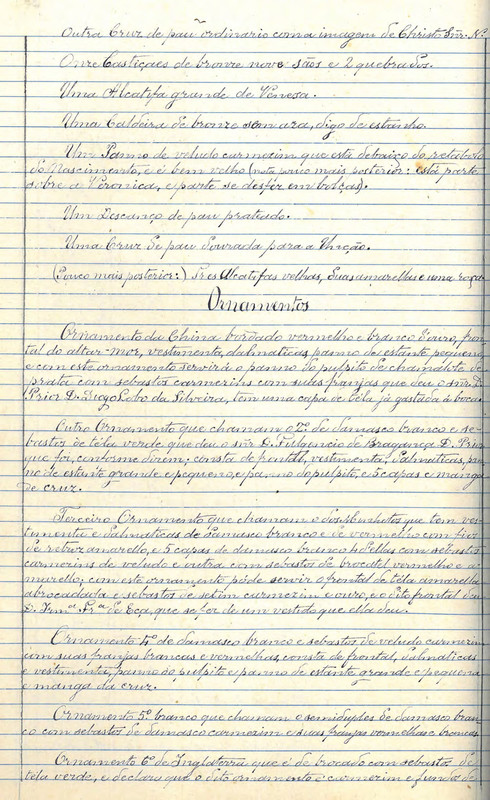 Outra Cruz de pau ordinario com a imagem de Christo Snr. N.
Onze Castiçaes de bronze nove sãos e 2 quebrados.
Uma Alcatifa grande de Venesa.
Uma Caldeira de bronze sem aza, digo de estanho.
Um Panno de veludo carmezim que está debaixo do retabolo
do Nascimento, e é bem velho (nota pouco mais posterior: está parte
sobre a Veronica, e parte se desfez em bolças).
Um Descanço de pau prateado.
Uma Cruz de pau dourada para a Unção.
(Pouco mais posterior:) Tres Alcatifas velhas, duas amarellas e uma
Ornamentos
Ornamento da China bordado vermelho e branco d'ouro, fron-
tal do altar-mor, vestimenta, dalmaticas, panno de estante pequeno,
e com este ornamento servirá o panno do pulpito de chamalote de
prata com sebastos carmezins com suas franjas que deu o snr. D.
Prior D. Diogo Lobo da Silveira, tem uma capa de téla já gastada á boca.
Outro Ornamento que chamam o 2º de damasco branco e se-
bastos de téla verde que deu o snr D. Fulgencio de Bragança D. Prior
que foi, conforme dizem; consta de frontal, vestimenta, dalmaticas, pan-
no de estante grande e pequeno, e panno do pulpito, e 5 capas e manga
de cruz.
Terceiro Ornamento que chamam o dos que tem ves-
timenta e dalmaticas de damasco branco e de vermelho com fios
de retroz amarello, e 5 capas de damasco branco 4 dellas com sebastos
carmezins de veludo e outra com sebastos de brocatel vermelho e a-
marello, com este ornamento póde servir o frontal de téla amarella
abrocadada e sebastos de setim carmezim e ouro, e o dito frontal deu
D. Frª de Eça, que se fez de um vestido que ella deu.
Ornamento 4º de damasco branco e sebastos de veludo carmezim
com suas franjas brancas e vermelhas, consta de frontal, dalmaticas
e vestimenta, panno do pulpito e panno de estante grande e pequena
e manga da cruz.
Ornamento 5º branco que chamam o semiduples de damasco bran-
co com sebastos de damasco carmezim e suas franjas vermelhas e brancas.
Ornamento 6º de Inglaterra que é de brocado com sebastos de
téla verde, e declara que o dito ornamento é carmezim e fundos de